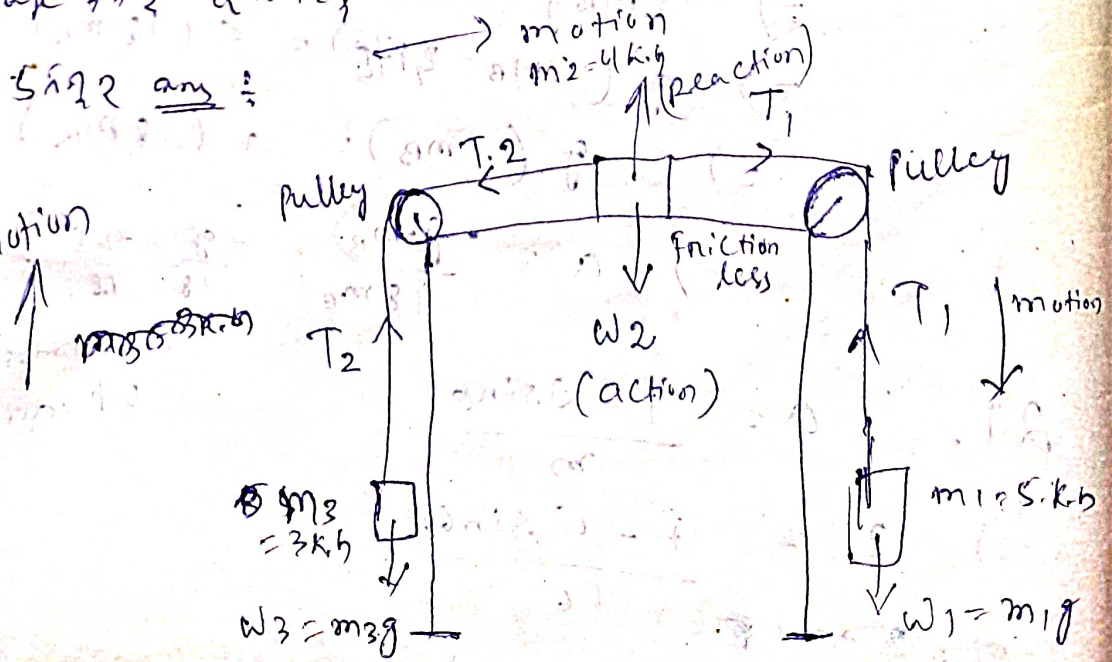 motion
m2=4k.g
(Reaction)
5 ans :
T1
T2
Pulley
Pulley
otion
Friction
less
T1
motion
T2
W2
(action)
m3
=3kg
m1=5.kg
W3=m3g
W1=m1g